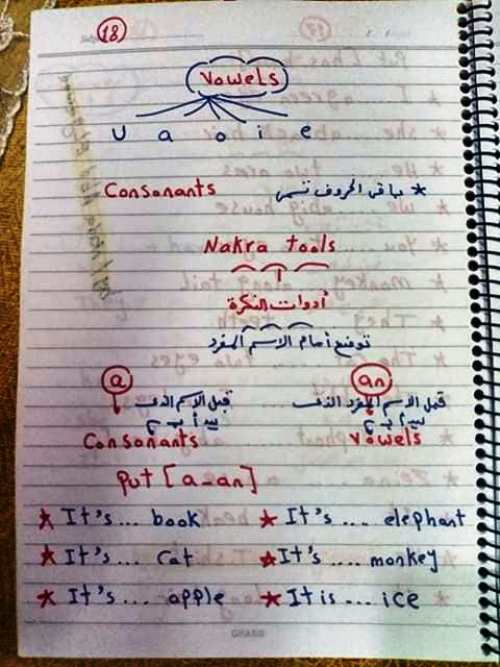 18
Vowels
u a o i e
Consonants باقى الحروف تسمى *
Nakra tools
أدوات النكرة
توضع أمام الاسم المفرد
a an
قبل الاسم الذى قبل الاسم المفرد الذى
يبدأ ب يبدأ ب
Consonants vowels
put [a - an]
* It's ... book * It's .... elephant
* It's ... cat * It's .... monkey
* It's ... apple * It is .... ice
GHASB